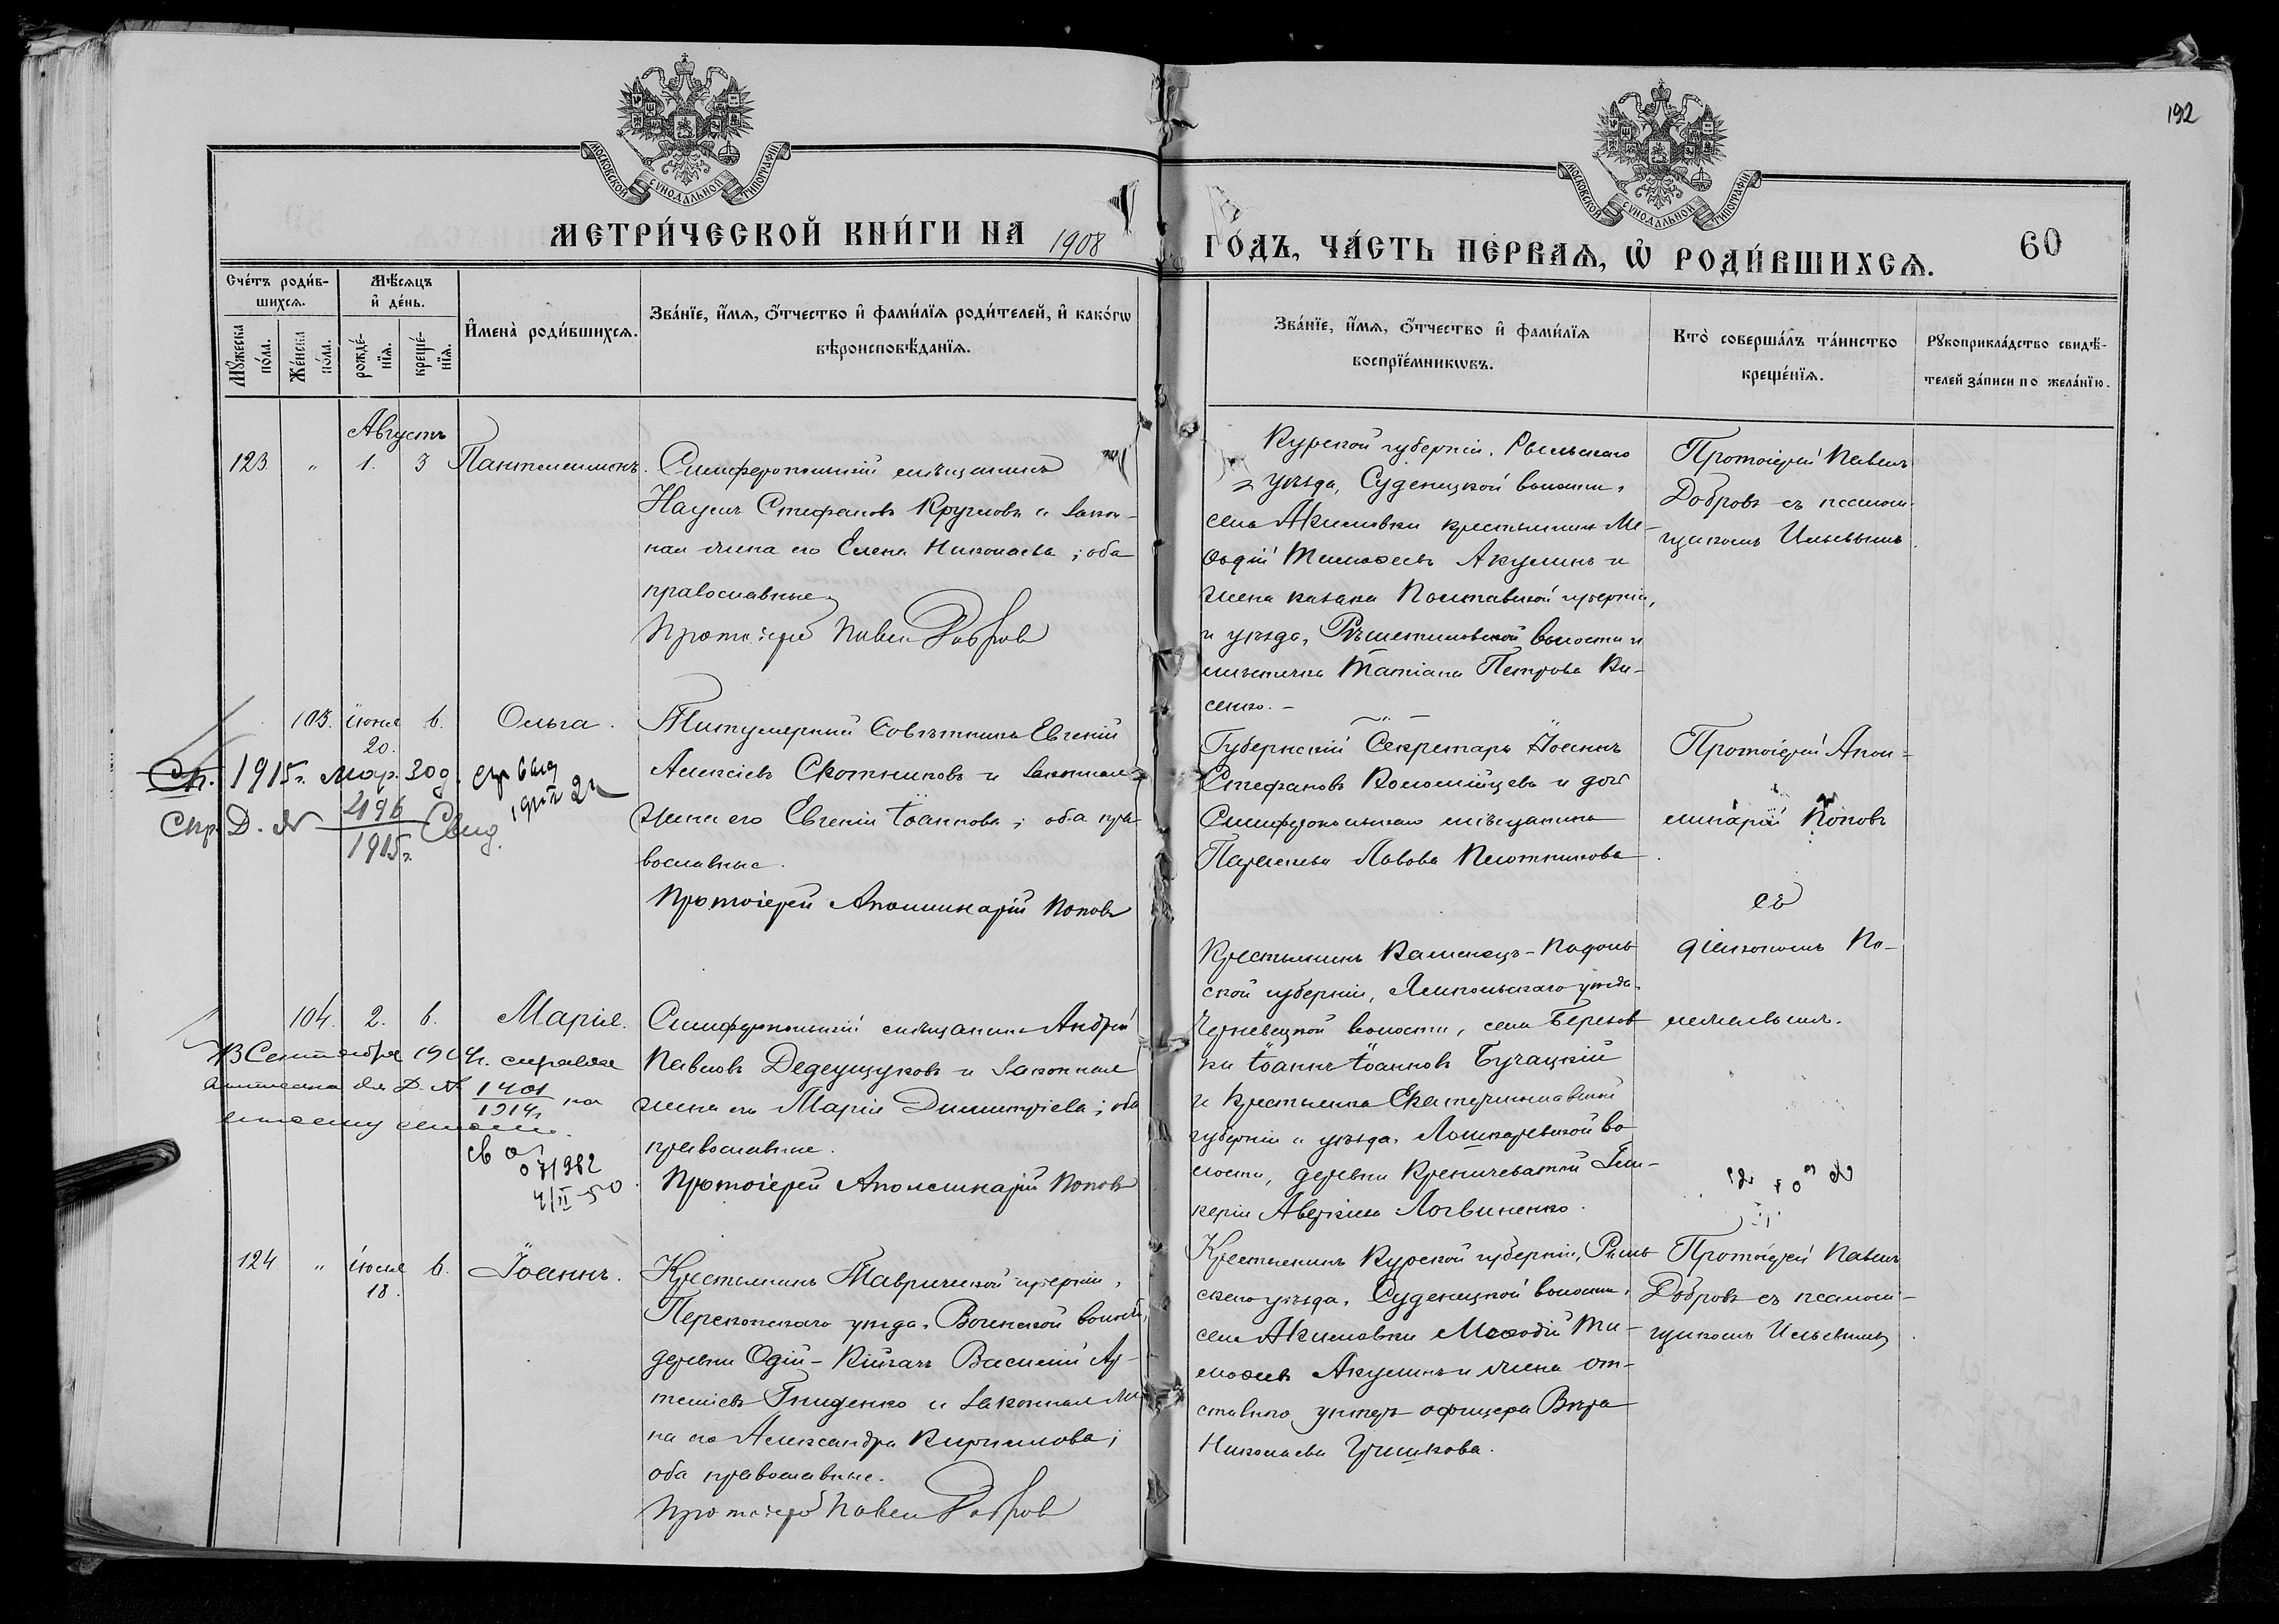 192
МОСКОВСКОЙ СѴНОДАЛЬНОЙ ТИПОГРАФІИ
МОСКОВСКОЙ СѴНОДАЛЬНОЙ ТИПОГРАФІИ
МЕТРИ́ЧЕСКОЙ КНИ́ГИ НА 1908
ГО́ДЪ, ЧА́СТЬ ПЕ́РВАѦ, Ѡ҆ РОДИ́ВШИХСѦ.
60
Сче́тъ роди́в-
шихсѧ.
Мѣ́сѧцъ
и҆ де́нь.
Мꙋ́жеска
по́ла.
Же́нска
по́ла.
рожде́-
нїѧ.
креще́-
нїѧ.
И҆мена̀ роди́вшихсѧ.
Зва́нїе, и҆́мѧ, ѻ҆́тчество и҆ фами́лїѧ роди́телей, и҆ како́гѡ
вѣроисповѣ́данїѧ.
Зва́нїе, и҆́мѧ, ѻ҆́тчество и҆ фами́лїѧ
воспрїе́мникѡвъ.
Кто̀ соверша́лъ та́инство
креще́нїѧ.
Рꙋкоприкла́дство свидѣ́-
телей за́писи по жела́нїю.
Августъ
123 " 1. 3 Пантелеимонъ.
Симферопольскій мѣщанинъ
Наумъ Стефановъ Кругловъ и закон-
ная жена его Елена Николаева; оба
православные
Протоіерей Павелъ Добровъ
Курской губерніи, Рыльскаго
уѣзда, Суденицкой волости,
села Акимовки крестьянинъ Ме-
ѳодій Тимоѳеевъ Акулинъ и
жена казака Полтавской губерніи,
и уѣзда, Рѣшетиловской волости и
мѣстечка Татіана Петрова Ки-
сенко.-
Протоіерей Павелъ
Добровъ съ псалом-
щикомъ Ильевымъ
103. іюня 6. Ольга.
20.
Ст. 1915 г. Мар. 30 д.
Спр. Д. № 2196 Свид.
1915 г.
Титулярный Совѣтникъ Евгеній
Алексіевъ Скотниковъ и законная
жена его Евгенія Іоаннова; оба пра-
вославные.
Протоіерей Аполлинарій Поповъ
Губернскій Секретарь Іоаннъ
Стефановъ Коломійцевъ и дочь
Симферопольскаго мѣщанина
Параскева Львова Плотникова.
Протоіерей Апол-
линарій Поповъ
съ
діакономъ По-
104. 2. 6. Марія.
13 Сентября 1914 г. справка
Д. № 1401 на
1914 г.
071982
4/II-50
Симферопольскій мѣщанинъ Андрей
Павловъ Дедеущуковъ и законная
жена его Марія Димитріева; оба
православные.
Протоіерей Аполлинарій Поповъ
Крестьянинъ Каменецъ-Подоль-
ской губерніи, Ямпольскаго уѣзда,
Черневецкой волости, села Березов-
ки Іоаннъ Іоанновъ Бучацкій
и крестьянка Екатеринославской
губерніи и уѣзда, Лошкаревской во-
лости, деревни Криничеватой Гли-
керія Аверкіева Логвиненко.
124 " іюля 6. Іоаннъ.
18.
Крестьянинъ Таврической губерніи,
Перекопскаго уѣзда, Воинской волости,
деревни Одій-Кійгачъ Василій Ар-
теміевъ Гниденко и законная же-
на его Александра Кириллова;
оба православные.
Протоіерей Павелъ Добровъ
Крестьянинъ Курской губерніи, Рыль-
скаго уѣзда, Суденицкой волости,
села Акимовки Меѳодій Ти-
моѳеевъ Акулинъ и жена от-
ставного унтеръ офицера Вѣра
Николаева Гришкова.
Протоіерей Павелъ
Добровъ съ псалом-
щикомъ Ильевымъ